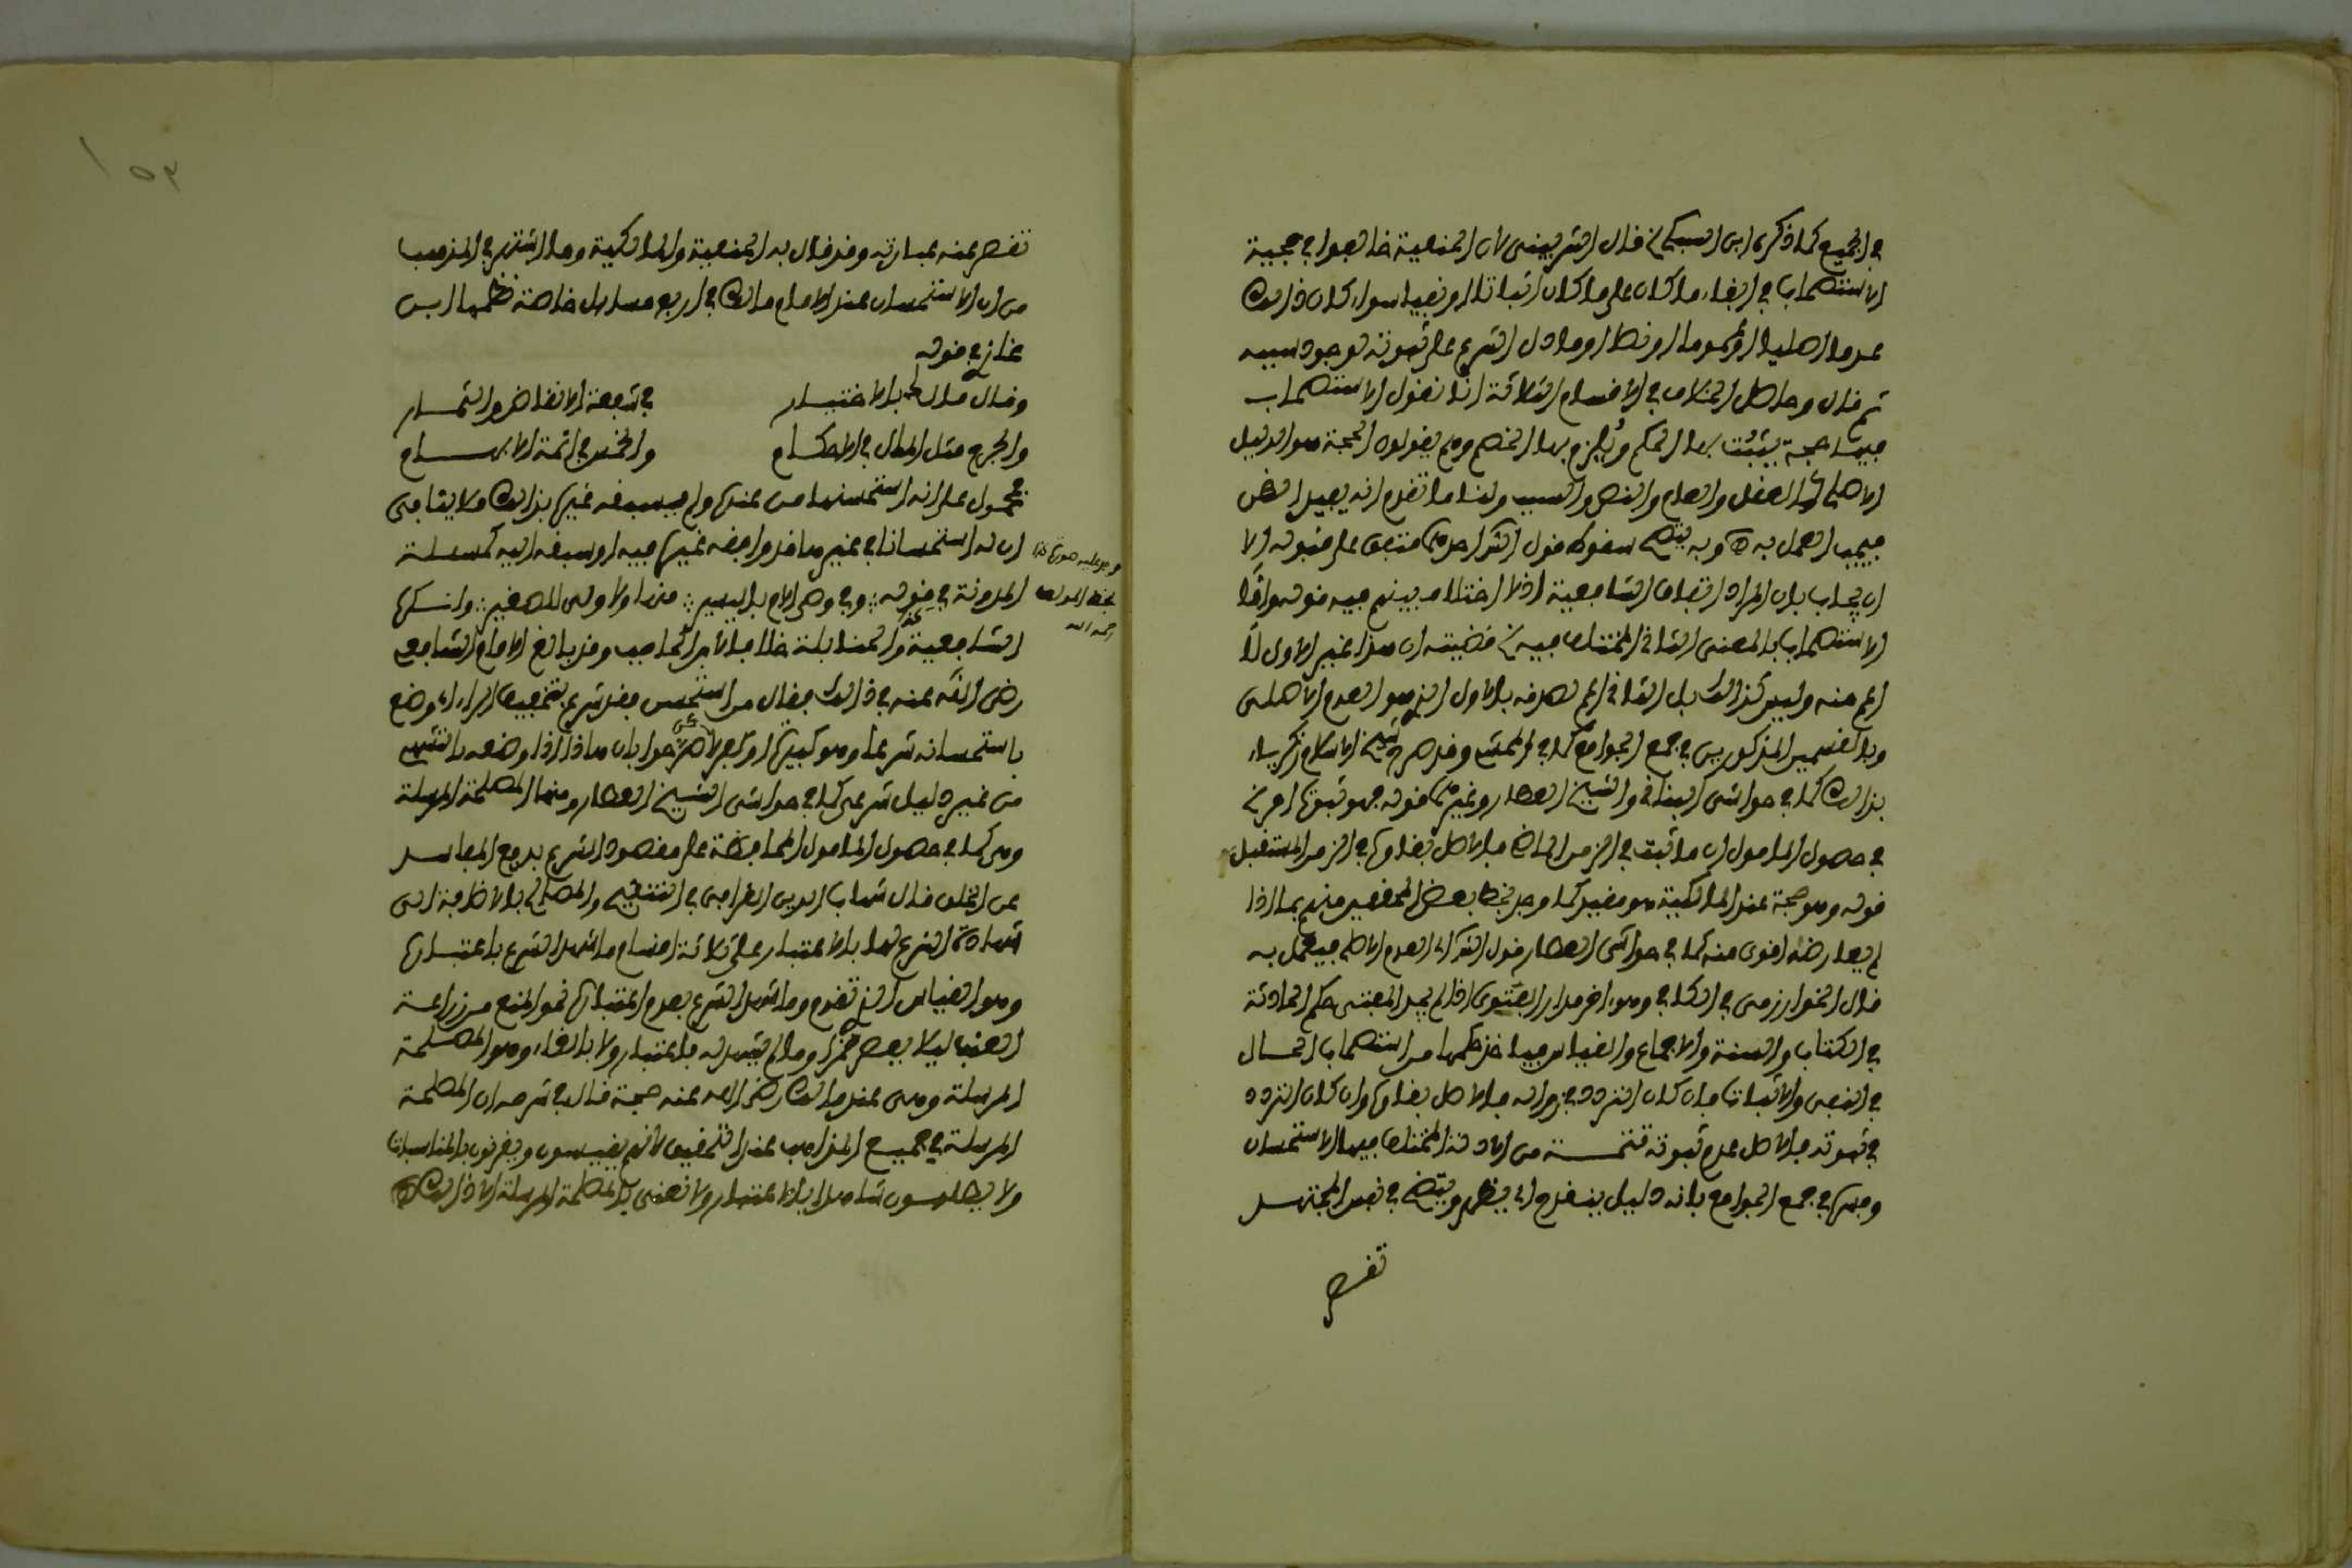 في الجميع كما ذكره ابن السبكي خ قال الشربيني لان الحنفية خالفوا في حجية
الاستصحاب في ابقاء ما كان على ما كان اثباتا او نفيا سواء كان ذلك
عدما اصليا او عموما او نصا او ما دل الشرع على ثبوته لوجود سببه
ثم قال وحاصل الخلاف في الاقسام الثلاثة انا نقول الاستصحاب
فيها حجة يثبت بها الحكم ويلزم بها الخصم وهم يقولون الحجة هو الدليل
الاصلي العقل والعام والنص والسبب ولنا ما تقدم انه يفيد الظن
فيجب العمل به وبه يتضح سقوط قول متفق على قبوله الا
ان يجاب بان المراد اتفاق الشافعية اذ لا اختلاف بينهم فيه قوله واما
الاستصحاب بالمعنى الثاني المختلف فيه خ قضيته ان هذا غير الاول لا
اعم منه وليس كذلك بل الثاني اعم لصدقه بالاول الذي هو العدم الاصلي
وبالقسمين المذكورين في جمع الجوامع كما في وقد صرح شيخ الاسلام زكرياء
بذلك كما في حواشي البناني والشيخ العطار وغيرهما قوله فهو ثبوت امر خ
في حصول المامول ان ما ثبت في الزمن الماضي فالاصل بقاؤه في الزمن المستقبل
قوله وهو حجة عند المالكية هو مفيد كما وجد بخط بعض المحققين منهم بما اذا
لم يعارضه اقوى منه كما في حواشي العطار قول العدم الاصلي فيعمل به
قال الخوارزمي في الكافي وهو اخر مدار الفتوى اذا لم يجد المفتي حكم الحادثة
في الكتاب والسنة والاجماع والقياس فياخذ حكمها من استصحاب الحال
في النفي والاثبات فان كان التردد في زواله فالاصل بقاؤه وان كان التردد
في ثبوته فالاصل عدم ثبوته تتمة من الادلة المختلف فيها الاستحسان
وفسر في جمع الجوامع بانه دليل ينقدح اي يظهر ويتضح في نفس المجتهد
تقصر
تقصر عنه عبارته وقد قال به الحنفية والمالكية وما اشتهر في المذهب
من ان الاستحسان عند الامام مالك في اربع مسايل خاصة نظمها ابن
غازي في قوله
وقال مالك بالاختيار في شفعة الانقاض والثمار
والجرح مثل المال في الاحكام والخمس في انملة الابهام
محمول على انه استحسنها من عنده ولم يسبقه غيره بذلك فلا ينافي
ان له استحسانا في غير هذا قد وافقه غيره فيه او سبقه اليه كمسئلة
المدونة في قوله وفي وصي الام باليسير منها ولا ولي للصغير وانكره
وجد عليه صورة كذا
بخط المولف
رحمه الله
الشافعية والحنابلة خلافا لابن الحاجب وقد بالغ الامام الشافعي
رضي الله عنه في ذلك فقال من استحسن فقد شرع بتخفيف الراء اي وضع
باستحسانه شرعا وهو كبيرة او كفر
من غير دليل شرعي كما في حواشي الشيخ العطار ومنها المصلحة المرسلة
وهي كما في حصول المامول المحافظة على مقصود الشرع بدفع المفاسد
عن الخلق قال شهاب الدين القرافي في التنقيح والمصالح بالاضافة الى
شهادة الشرع لها بالاعتبار على ثلاثة اقسام ما شهد الشرع باعتباره
وهو القياس الذي تقدم وما شهد الشرع بعدم اعتباره نحو المنع من زراعة
العنب ليلا يعصر خمرا وما لم يشهد له باعتبار ولا بالغاء وهو المصلحة
المرسلة وهي عند مالك رضي الله عنه حجة قال في شرحه ان المصلحة
المرسلة في جميع المذاهب عند التحقيق لانهم يقيسون ويفرقون بالمناسبات
ولا يطلبون شاهدا بالاعتبار ولا نعني بالمصلحة المرسلة الا ذلك